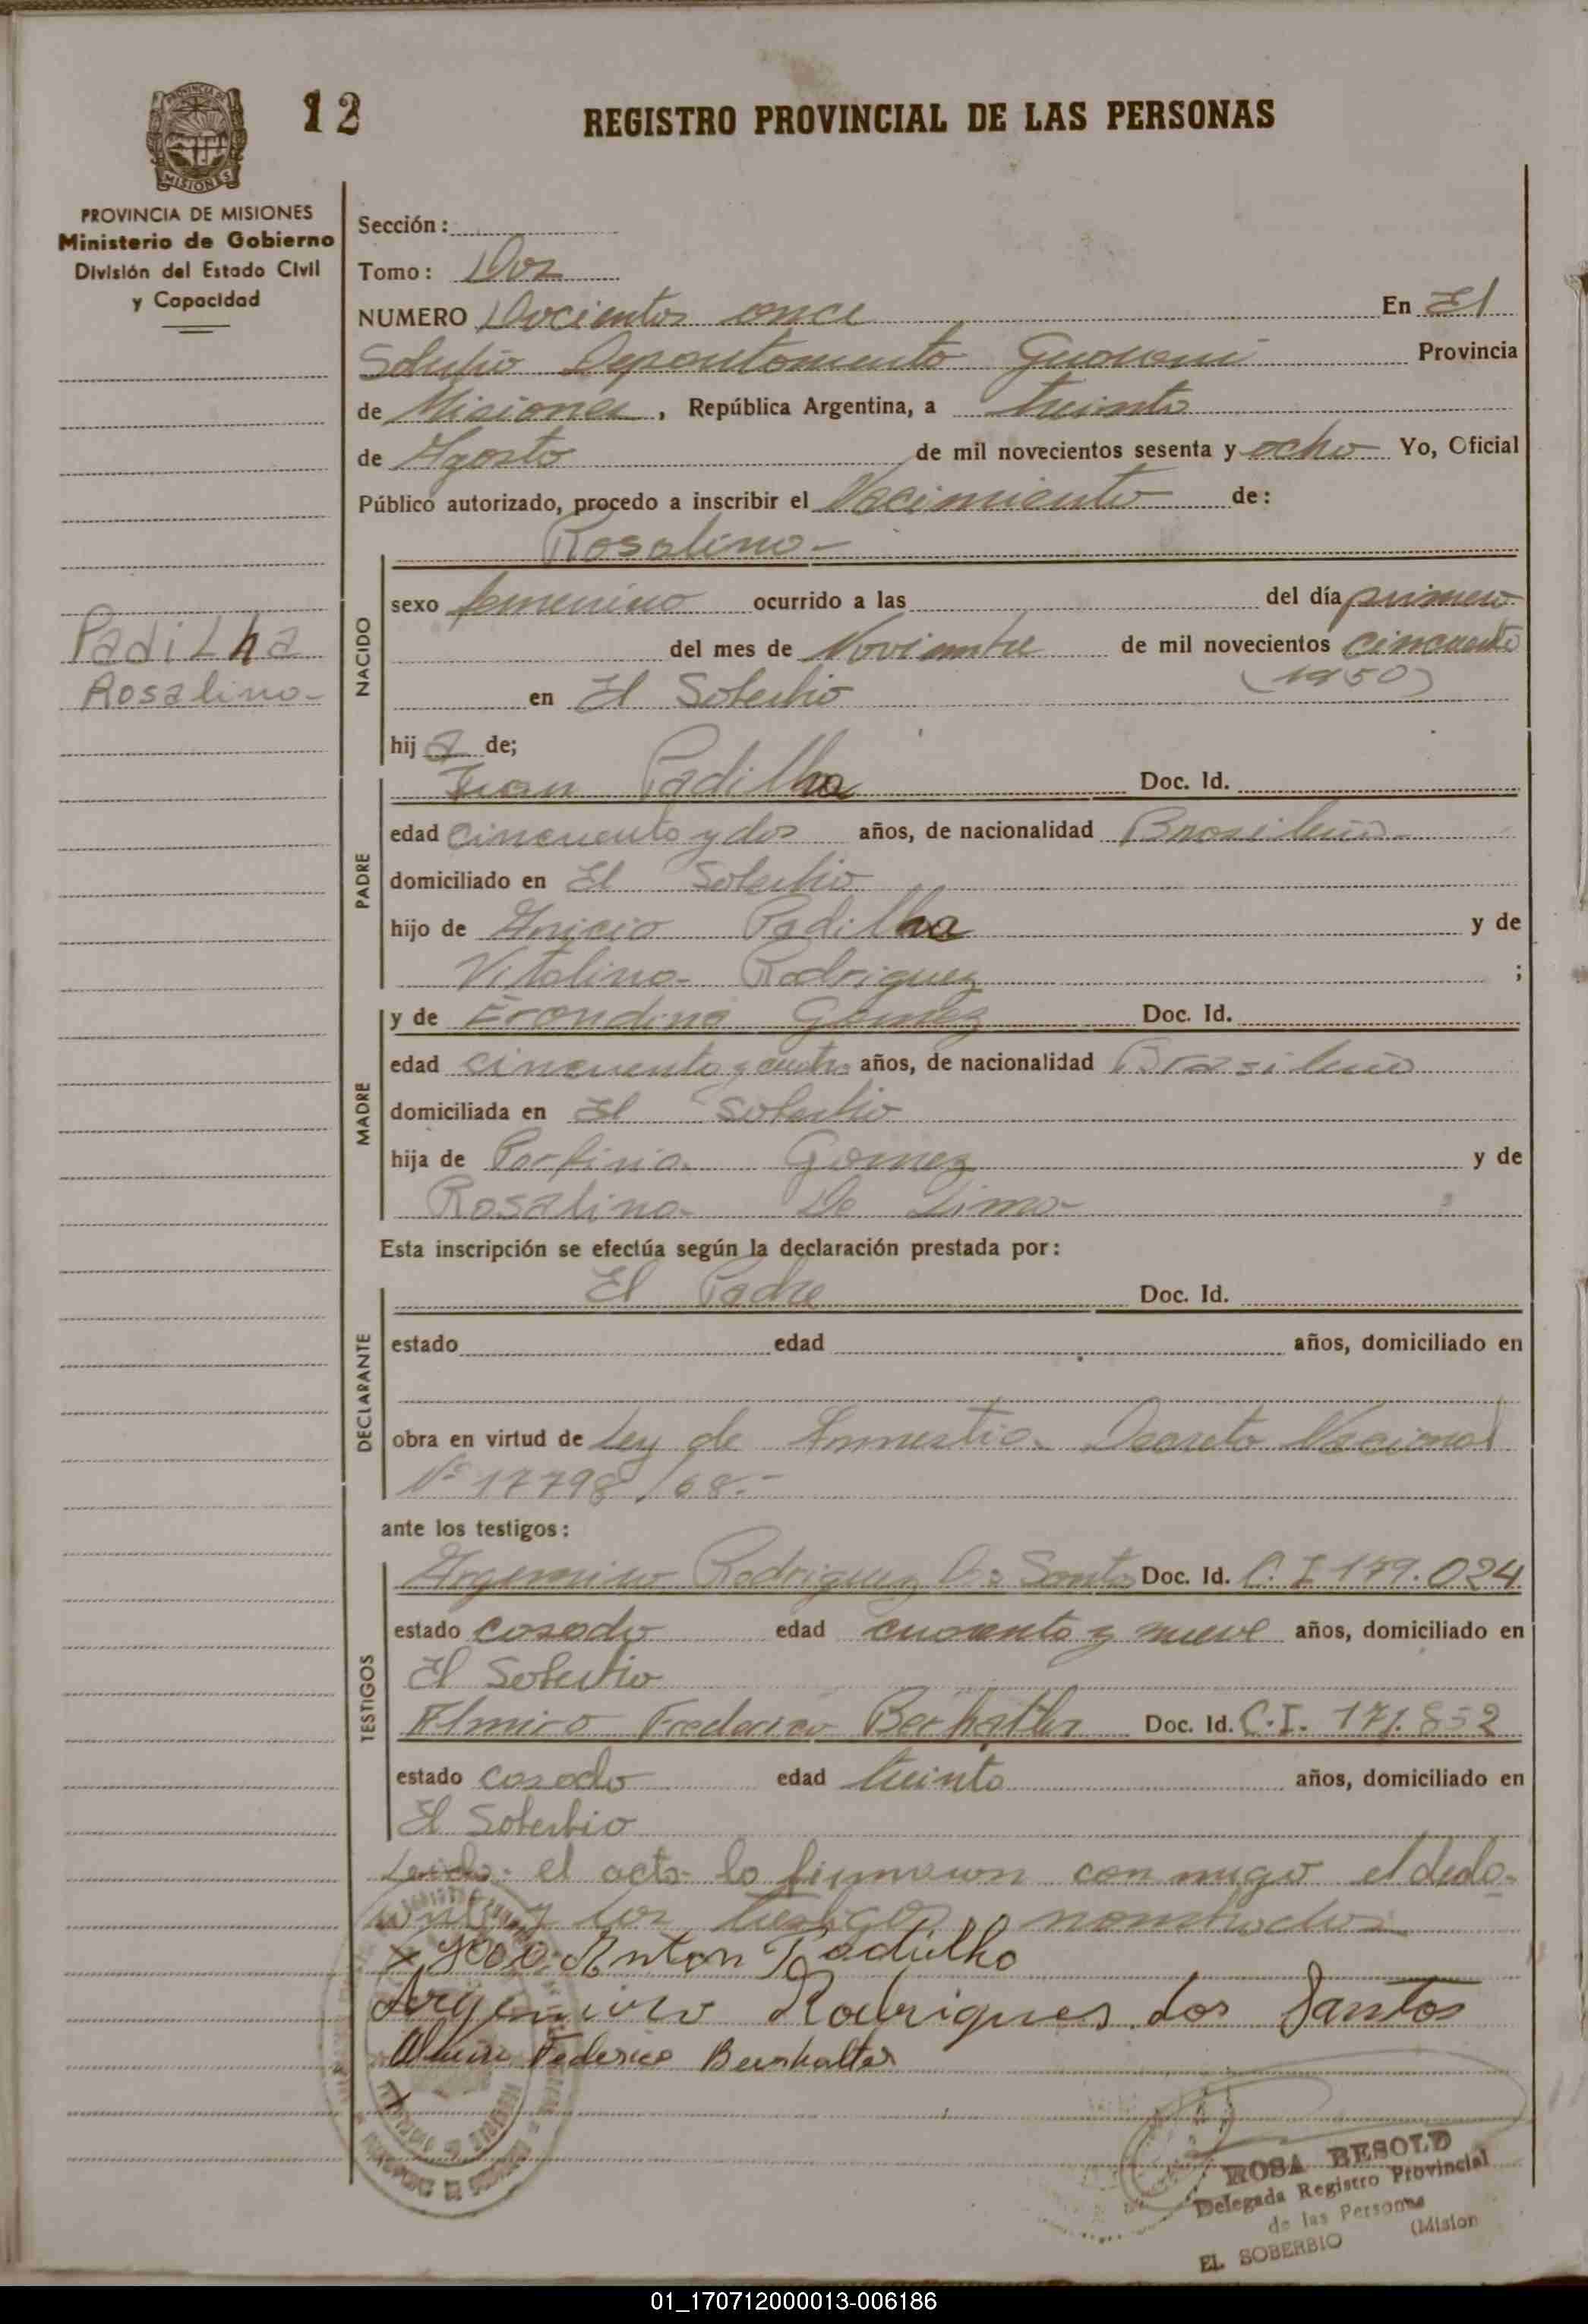 12
REGISTRO PROVINCIAL DE LAS PERSONAS
PROVINCIA DE MISIONES
Ministerio de Gobierno
División del Estado Civil
y Capacidad
MISIONES
Sección:
Tomo: Dos
NUMERO Docientos once En El
Soberbio Departamento Guarani Provincia
de Misiones, República Argentina, a treinta
de Agosto de mil novecientos sesenta y ocho Yo, Oficial
Público autorizado, procedo a inscribir el Nacimiento de:
Rosalina-
Padilha
Rosalina-
NACIDO
sexo femenino ocurrido a las del día primero
del mes de Noviembre de mil novecientos cincuenta
(1950)
en El Soberbio
hij a de;
PADRE
Juan Padilha Doc. Id.
edad cincuenta y dos años, de nacionalidad Brasileña-
domiciliado en El Soberbio
hijo de Padilha y de
Vitalina- Rodriguez ;
MADRE
y de Erondina Gomez Doc. Id.
edad cincuenta y cuatro años, de nacionalidad Brasileña
domiciliada en El Soberbio
hija de Porfirio Gomez y de
Rosalina- De Lima-
Esta inscripción se efectúa según la declaración prestada por:
DECLARANTE
El Padre Doc. Id.
estado edad años, domiciliado en
obra en virtud de Ley de Amnestia- Decreto Nacional
Nº 17798/68.-
ante los testigos:
TESTIGOS
Argemiro Rodriguez Dos Santos Doc. Id. C. I 179.024
estado casado edad cuarenta y nueve años, domiciliado en
El Soberbio
Almiro Frederico Doc. Id. C.I. 171.852
estado casado edad treinta años, domiciliado en
El Soberbio
Leida- el acta- la firmaron con migo el decla-
rante y los testigos nombrados
x Anton Padilho
Argemiro Rodrigues dos Santos
Almiro Federico Bernhalter
ROSA BESOLD
Delegada Registro Provincial
de las Personas
EL SOBERBIO (Mision
01_170712000013-006186